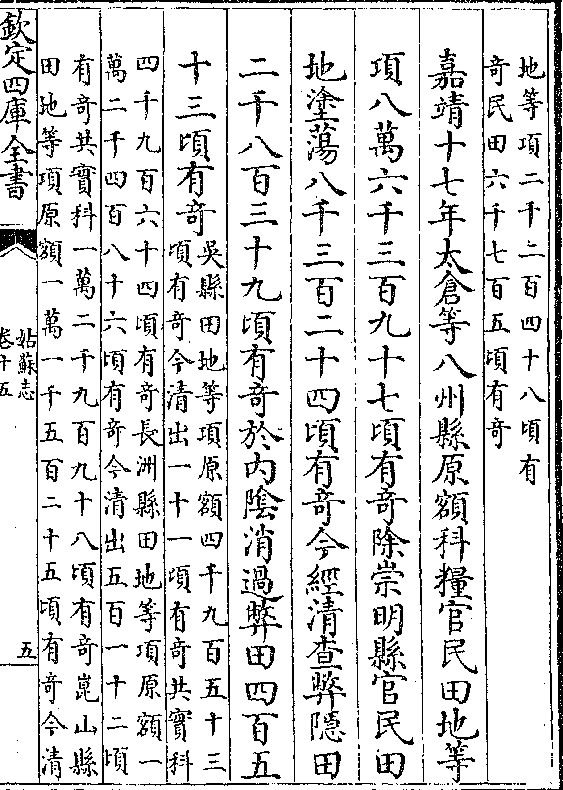 地等項二千二百四十八頃有
奇民田六千七百五頃有奇
嘉靖十七年太倉等八州縣原額科糧官民田地等
項八萬六千三百九十七頃有奇除崇明縣官民田
地塗蕩八千三百二十四頃有奇今經清查弊隠田
二千八百三十九頃有奇於内陰消過弊田四百五
十三頃有奇
吳縣田地等項原額四千九百五十三
頃有奇今清出一十一頃有奇共實科
四千九百六十四頃有奇長洲縣田地等項原額一
萬二千四百八十六頃有奇今清出五百一十二頃
有奇共實科一萬二千九百九十八頃有奇崑山縣
田地等項原額一萬一千五百二十五頃有奇今清
欽定四庫全書
姑蘇志
卷十五
五